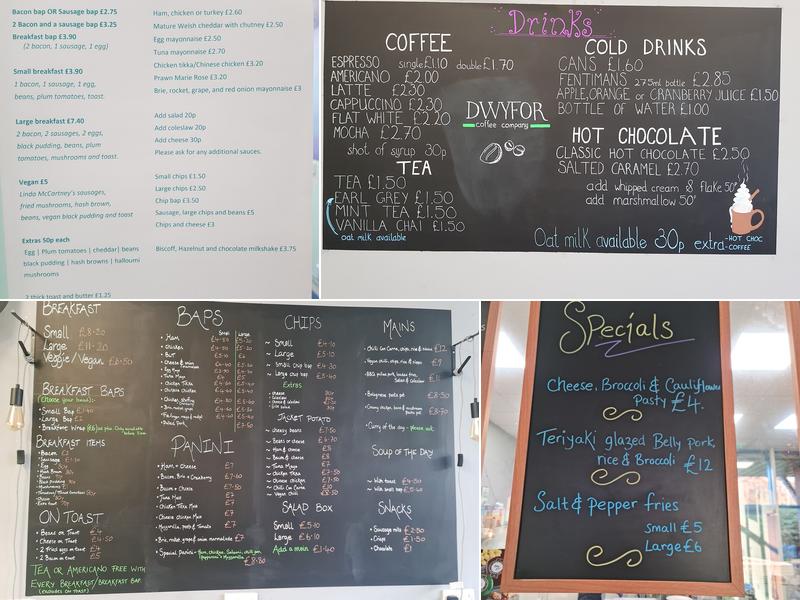 Bacon bap OR Sausage bap £2.75
2 Bacon and a sausage bap £3.25
Breakfast bap £3.90
(2 bacon, 1 sausage, 1 egg)
Small breakfast £3.90
1 bacon, 1 sausage, 1 egg,
beans, plum tomatoes, toast.
Large breakfast £7.40
2 bacon, 2 sausages, 2 eggs,
black pudding, beans, plum
tomatoes, mushrooms and toast.
Vegan £5
Linda McCartney's sausages,
fried mushrooms, hash brown,
beans, vegan black pudding and toast
Extras 50p each
Egg | Plum tomatoes | cheddar| beans
black pudding | hash browns | halloumi
mushrooms
2 thick toast and butter £1.25
Ham, chicken or turkey £2.60
Mature Welsh cheddar with chutney £2.50
Egg mayonnaise £2.50
Tuna mayonnaise £2.70
Chicken tikka/Chinese chicken £3.20
Prawn Marie Rose £3.20
Brie, rocket, grape, and red onion mayonnaise £3
Add salad 20p
Add coleslaw 20p
Add cheese 30p
Please ask for any additional sauces.
Small chips £1.50
Large chips £2.50
Chip bap £3.50
Sausage, large chips and beans £5
Chips and cheese £3
Biscoff, Hazelnut and chocolate milkshake £3.75
Drinks
COFFEE
ESPRESSO single £1.10 double £1.70
AMERICANO £2.00
LATTE £2.30
CAPPUCCINO £2.30
FLAT WHITE £2.20
MOCHA £2.70
shot of syrup 30p
TEA
TEA £1.50
EARL GREY £1.50
MINT TEA £1.50
VANILLA CHAI £1.50
oat milk available
DWYFOR
coffee company
COLD DRINKS
CANS £1.60
FENTIMANS 275ml bottle £2.85
APPLE, ORANGE or CRANBERRY JUICE £1.50
BOTTLE OF WATER £1.00
HOT CHOCOLATE
CLASSIC HOT CHOCOLATE £2.50
SALTED CARAMEL £2.70
add whipped cream & flake 50p
add marshmallow 50p
Oat milk available 30p extra
-HOT CHOC
-COFFEE
BREAKFAST
Small £8.20
Large £11.20
Veggie/Vegan
BREAKFAST BAPS
(Choose your bread):
Small Bap
Large Bap
Breakfast Wrap
BREAKFAST ITEMS
Bacon
Sausage
Egg
Hash Brown
Beans
Black pudding
Mushrooms
ON TOAST
Beans on Toast £4
Cheese on Toast
2 Fried eggs on toast
2 Bacon on toast £5
TEA OR AMERICANO FREE WITH
EVERY BREAKFAST/BREAKFAST BAP.
(EXCLUDES ON TOAST)
BAPS
Small Large
Ham
Chicken
BLT
Cheese & onion
Egg Mayo
Tuna Mayo
Chicken Tikka
Chinese Chicken
PANINI
Ham + Cheese £7
Bacon, Brie + Cranberry £7.60
Bacon + Cheese £7.50
Tuna Melt £7
Chicken Tikka Mix £7
Chinese Chicken Mix £7
Mozzarella, pesto & Tomato £7
Brie, rocket, grape + onion marmalade £7
Special panini
£8.80
CHIPS
Small £4.10
Large £5.10
Small chip bap
Large chip bap
Extras
JACKET POTATO
Cheesy beans £7.50
Beans or cheese £6.70
Ham & cheese £8
Bacon & cheese £8
Tuna Mayo £7
Chicken Tikka £7.50
Chinese chicken £7.50
Chilli Con Carne
Vegan Chilli
SALAD BOX
Small £5.10
Large £6.10
Add a main £1.40
MAINS
Chilli Con Carne, chips, rice & £12
Vegan chilli, chips, rice £9
Bolognese pasta pot £8.50
£8.70
Curry of the day - please ask
SOUP OF THE DAY
With toast £4.50
With small bap
SNACKS
Sausage rolls £2.80
Crisps £1.50
Chocolate £1
Specials
Cheese, Broccoli & Cauliflower
Pasty £4.
Teriyaki glazed Belly Pork,
rice & Broccoli £12
Salt & Pepper fries
small £5
Large £6